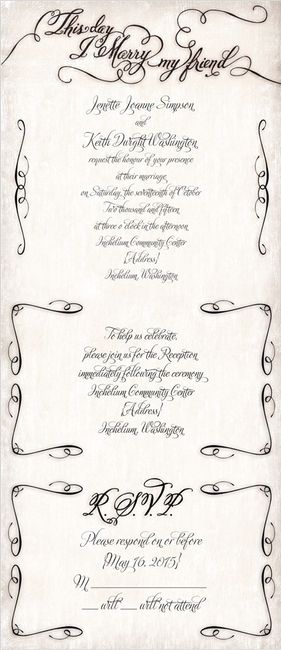 This day
I Marry my friend
Jenette Joanne Simpson
and
Keith Dwight Washington
request the honour of your presence
at their marriage
on Saturday, the seventeenth of October
Two thousand and fifteen
at three o'clock in the afternoon
Inchelium Community Center
[Address]
Inchelium, Washington
To help us celebrate,
please join us for the Reception
immediately following the ceremony
Inchelium Community Center
[Address]
Inchelium, Washington
R.S.V.P.
Please respond on or before
May 16, 2015!
M
will will not attend